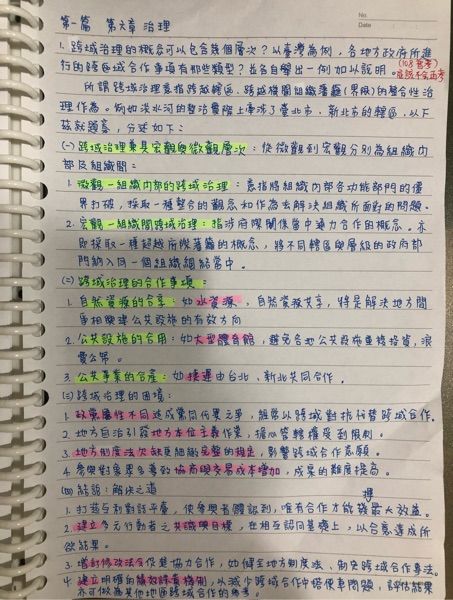 No.
Date
第一篇　第六章 治理
1. 跨域治理的概念可以包含幾個層次？以臺灣為例，各地方政府所進
行的跨區域合作事項有那些類型？並各自舉出一例加以說明。(108普考)
應該不會再考
所謂跨域治理意指跨越轄區、跨越機關組織藩籬(界限)的整合性治
理作為。例如淡水河的整治實際上牽涉了臺北市、新北市的轄區，以下
茲就題意，分述如下：
(一) 跨域治理兼具宏觀與微觀層次：從微觀到宏觀分別為組織內
部及組織間：
1. 微觀－組織內部的跨域治理：意指將組織內部各功能部門的僵
界打破，採取一種整合的觀念和作為去解決組織所面對的問題。
2. 宏觀－組織間跨域治理：指涉府際關係當中協力合作的概念。亦
即採取一種超越府際藩籬的概念，將不同轄區與層級的政府部
門納入同一個組織網絡當中。
(二) 跨域治理的合作事項：
1. 自然資源的合享：如水資源，自然資源共享，將是解決地方間
爭相興建公共設施的有效方向
2. 公共設施的合用：如大型體育館，避免各地公共設施重複投資，浪
費公帑。
3. 公共事業的合產：如捷運由台北、新北共同合作。
(三) 跨域治理的困境：
1. 政黨屬性不同造成黨同伐異之爭，經常以跨域對抗代替跨域合作。
2. 地方自治引發地方本位主義作祟，擔心管轄權受到限制。
3. 地方制度法欠缺更細緻完整的規定，影響跨域合作意願。
4. 參與對象眾多導致協商與交易成本增加，成案的難度提高。
(四) 結語：解決之道
1. 打造互利對話平臺，使參與者體認到，唯有合作才能獲得最大效益。
2. 建立多元行動者之共識與目標，在相互認同基礎上，以合意達成所
欲結果。
3. 增訂修改法令促進協力合作，如健全地方制度法、制定跨域合作專法。
4. 建立明確的績效評估機制，以減少跨域合作中搭便車問題，評估結果
亦可做為其他地區跨域合作的參考。